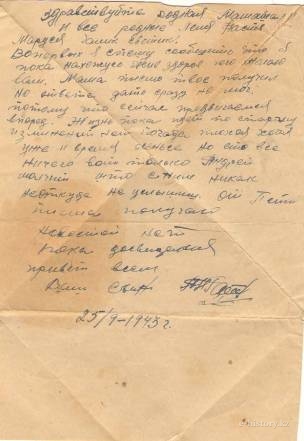 Здравствуйте родная Мамаша!!
И все родные Лена Настя
Маруся Ханы вестит.
Во первых я спешу сообщить что я
пока нахожусь жив здоров чего желаю
Вам. Мама письмо твое получил
Но ответа дать сразу не мог
потому что сейчас продвигаемся
вперод. Жизнь пока идет по старому
изминений нет. Погода плохая хотя
уже и время осеньее но это все
ничего вот только Андрей
молчит что с ним никак
неоткуда не услышиш. От Пети
письма получаю
Новостей нет
Пока досвидания
привет всем
Ваш Сын
25/9-1943 г.